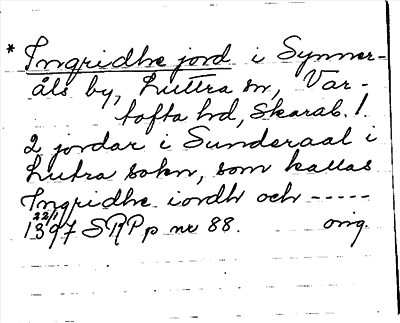 * Ingridhe jord i Synner-
åls by, Luttra sn, Var-
tofta hd, Skarab. l.
2 jordar i Sunderaal i
Lutra sokn, som kallas
Ingridhe iordh och -----
22/1
1397 SRPp nr 88. orig.